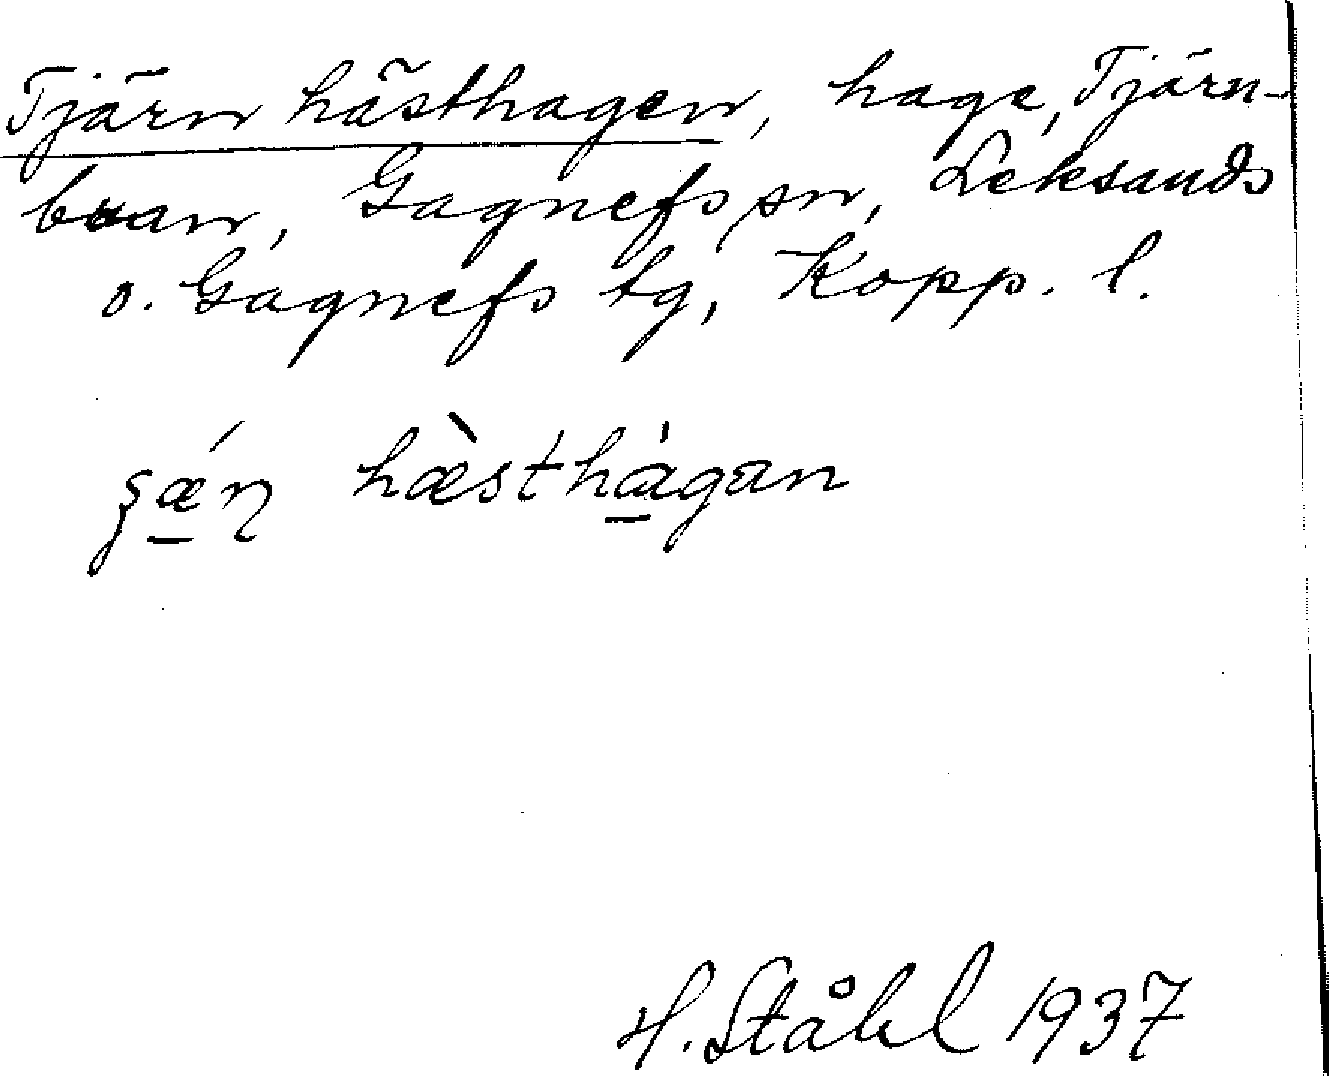 Tjärn hästhagen, hage, Tjärn-
buan, Gagnefs sn, Leksands
o. Gagnefs tg, Kopp. l.
hæ̀sthàgan
H. Ståhl 1937